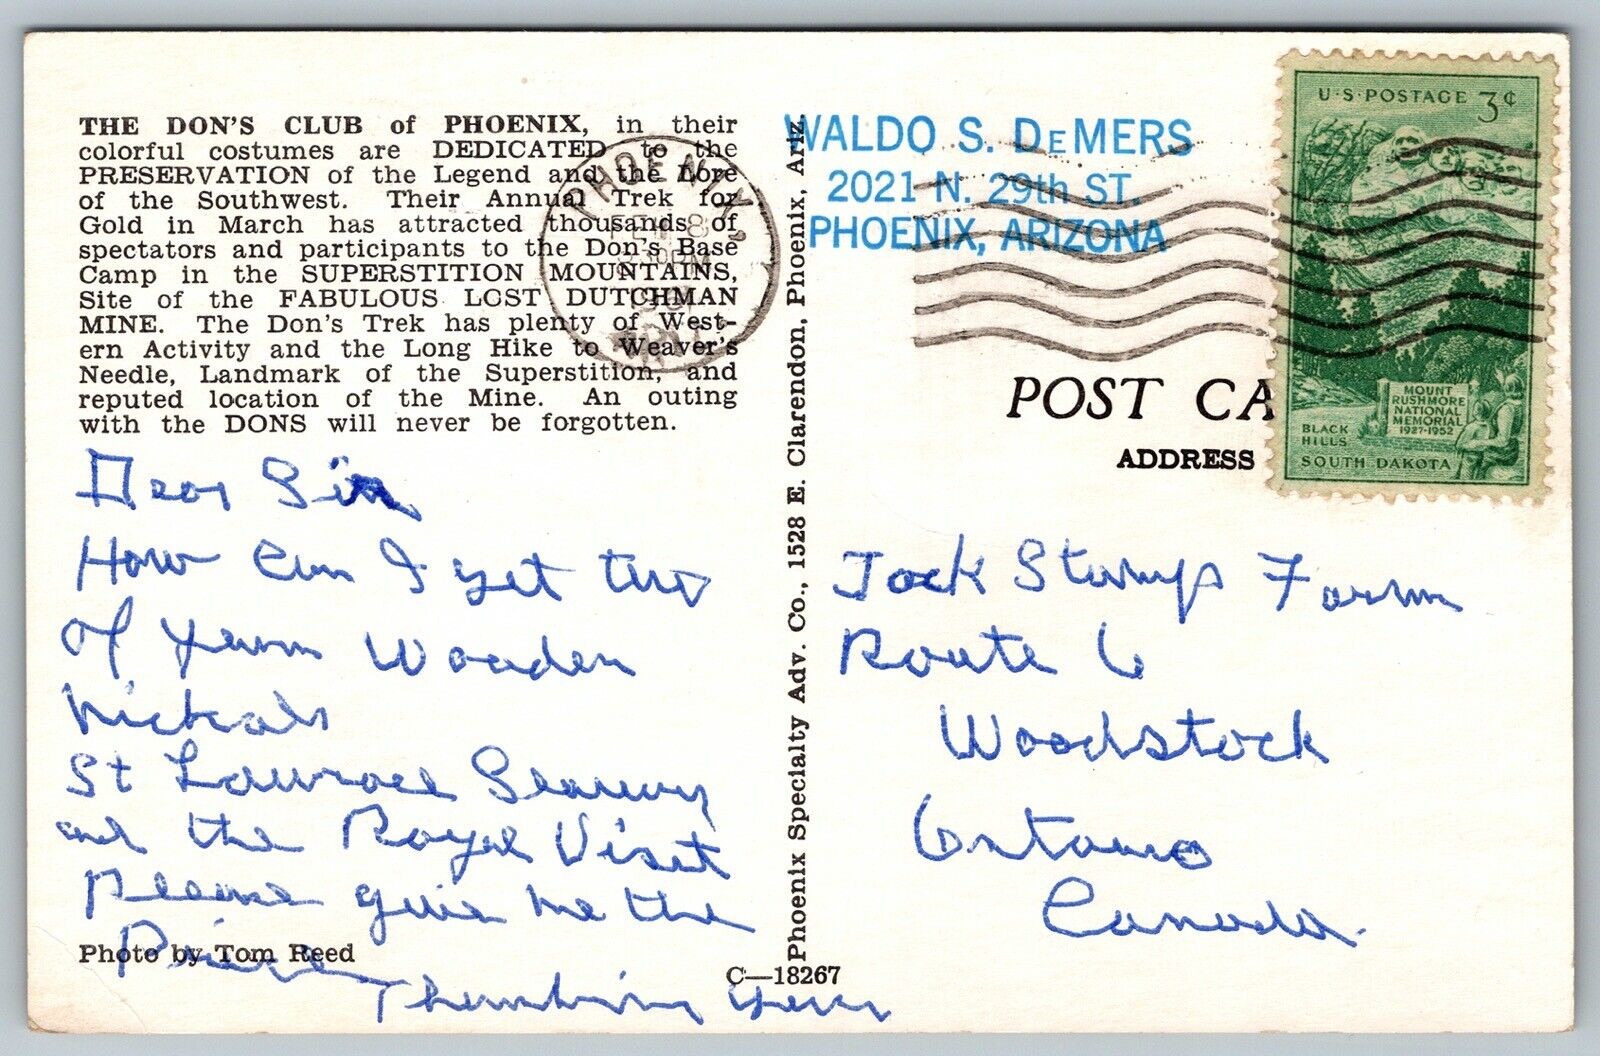 THE DON'S CLUB of PHOENIX, in their
colorful costumes are DEDICATED to the
PRESERVATION of the Legend and the Lore
of the Southwest. Their Annual Trek for
Gold in March has attracted thousands of
spectators and participants to the Don's Base
Camp in the SUPERSTITION MOUNTAINS,
Site of the FABULOUS LOST DUTCHMAN
MINE. The Don's Trek has plenty of West-
ern Activity and the Long Hike to Weaver's
Needle, Landmark of the Superstition, and
reputed location of the Mine. An outing
with the DONS will never be forgotten.
Dear Sir
How Can I get two
of your Wooden
Nickals
St Lawrace Seaway
and the Royal Visit
Please give me the
Price
Thanking you
Photo by Tom Reed
C—18267
Phoenix Specialty Adv. Co., 1528 E. Clarendon, Phoenix, Ariz.
PHOENIX
FEB 8
30 PM
ARIZ.
WALDO S. DEMERS
2021 N. 29th ST.
PHOENIX, ARIZONA
U·S·POSTAGE 3¢
MOUNT
RUSHMORE
NATIONAL
MEMORIAL
1927-1952
BLACK
HILLS
SOUTH DAKOTA
POST CA
ADDRESS
Jack Stamp Farm
Route 6
Woodstock
Ontario
Canada